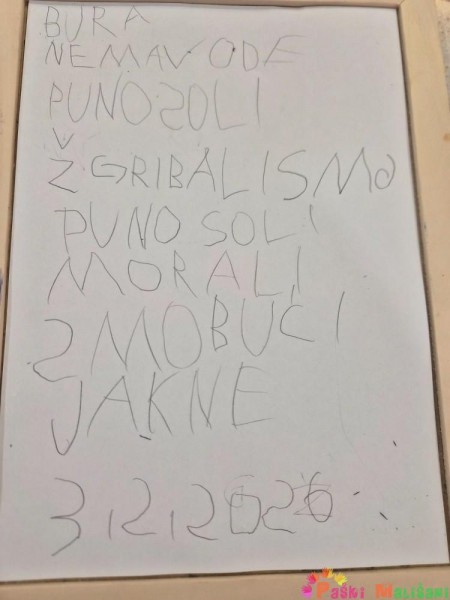 BURA
NEMAVODE
PUNOSOLI
ŽGRIBALISMO
PUNO SOLI
MORALI
SMOBUCI
JAKNE
3,2,2026
Paški Mališani